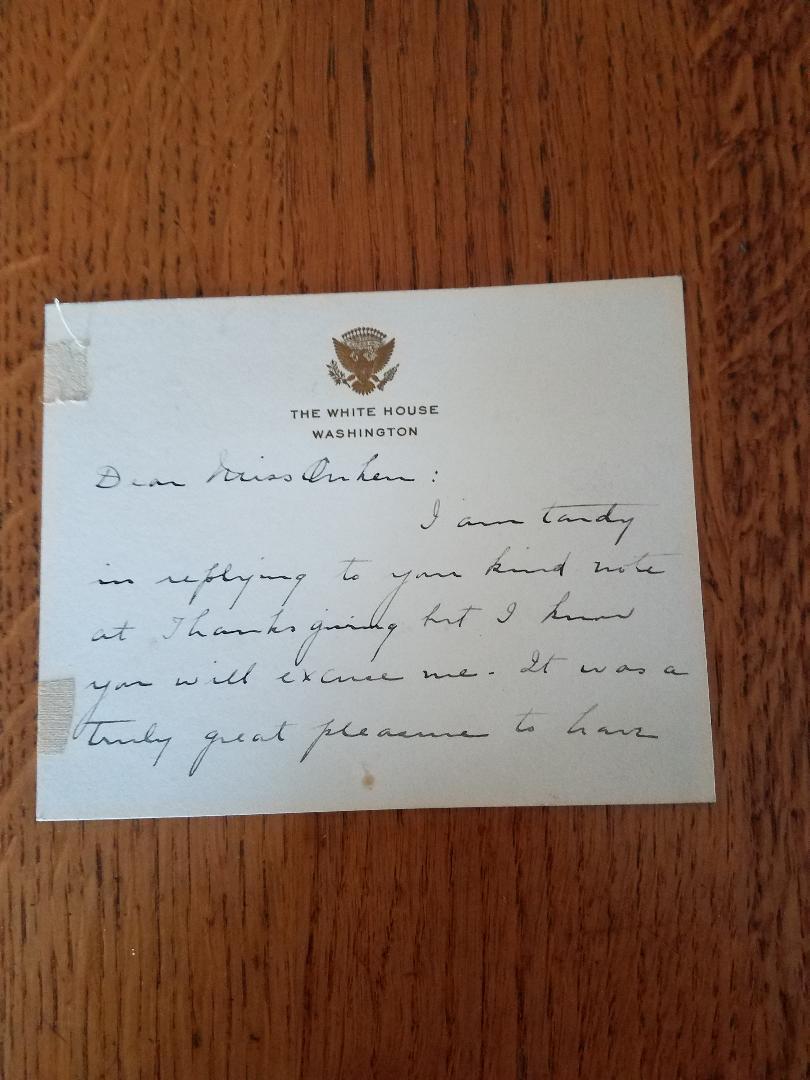 THE WHITE HOUSE
WASHINGTON
Dear Miss
I am tardy
in replying to your kind note
at Thanksgiving but I know
you will excuse me. It was a
truly great pleasure to have